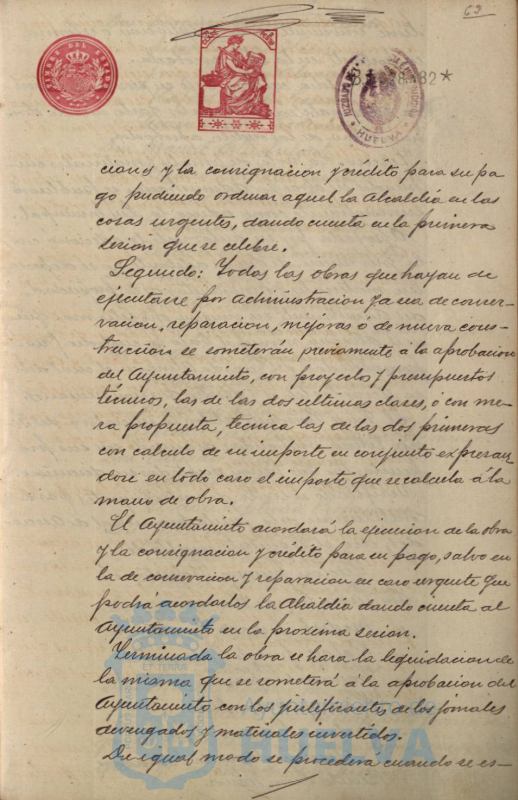 69
TIMBRE DEL ESTADO
B.1.828.382*
HUELVA
ciones y la consignacion y crédito para su pa
go pudiendo ordenar aquel la Alcaldía en los
casos urgentes, dando cuenta en la primera
sesion que se celebre.
Segundo: Todas las obras que hayan de
ejecutarse por administracion ya sea de conser-
vacion, reparacion, mejoras ó de nueva cons-
truccion se someterán previamente á la aprobacion
del Ayuntamiento, con proyectos y presupuestos
técnicos, las de las dos ultimas clases, ó con me
ra propuesta, tecnica las de las dos primeras
con calculo de su importe en conjunto expresan
dose en todo caso el importe que se calcula á la
mano de obra.
El Ayuntamiento acordará la ejecucion de la obra
y la consignacion y crédito para su pago, salvo en
la de conservacion y reparacion en caso urgente que
podrá acordarlos la Alcaldía dando cuenta al
Ayuntamiento en la proxima sesion.
Terminada la obra se hara la liquidacion de
la misma que se someterá á la aprobacion del
Ayuntamiento con los justificantes, de los jornales
devengados y materiales invertidos.
De igual modo se procedera cuando se es-
HUELVA